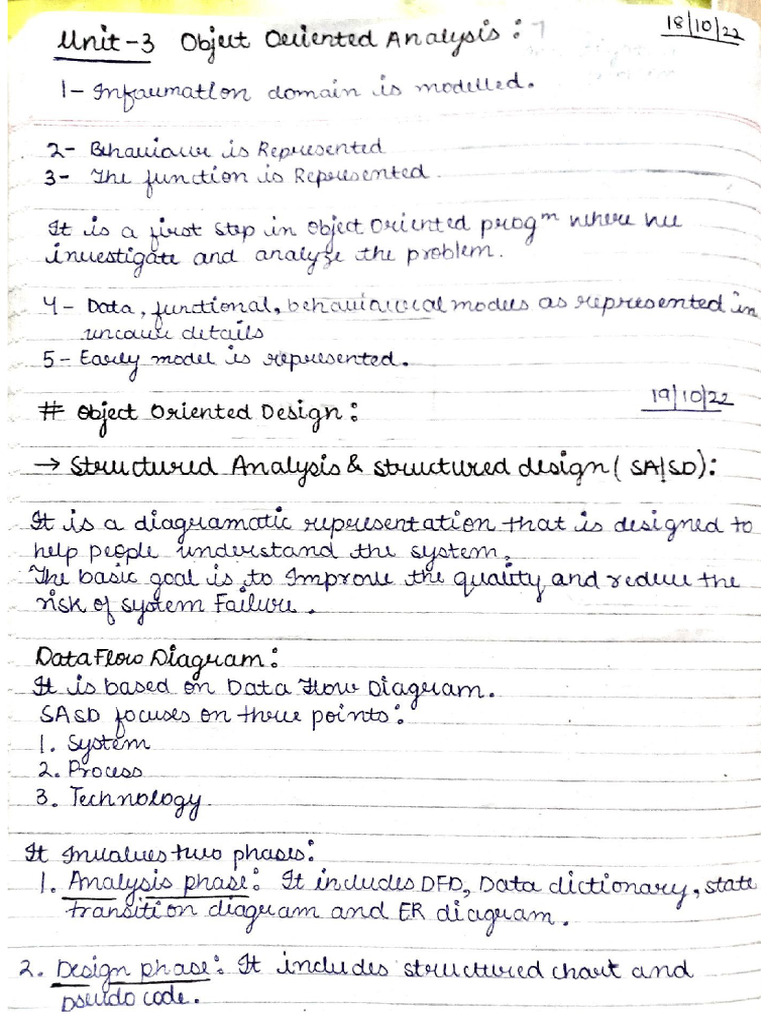 18/10/22
Unit-3 Object Oriented Analysis:
1- Information domain is modelled.
2- Behaviour is Represented
3- The function is Represented.
It is a first step in object oriented progᵐ where we
investigate and analyze the problem.
4- Data, functional, behavioural models as represented in
details
5- Early model is represented.
19/10/22
# Object Oriented Design:
→ Structured Analysis & structured design (SA/SD):
It is a diagramatic representation that is designed to
help people understand the system.
The basic goal is to Improve the quality and reduce the
risk of system Failure.
Data Flow Diagram:
It is based on Data Flow Diagram.
SASD focuses on three points:
1. System
2. Process
3. Technology.
It Involves two phases:
1. Analysis phase: It includes DFD, Data dictionary, state
transition diagram and ER diagram.
2. Design phase: It includes structured chart and
Pseudo code.